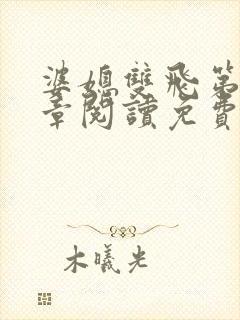 婆媳雙飛第
章閱讀免費
木曦光